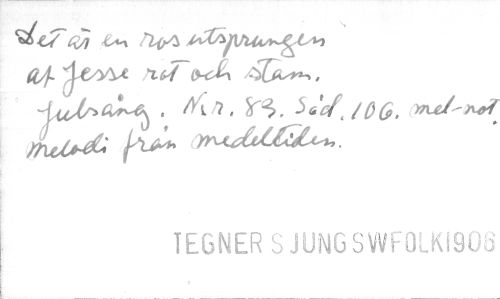 Det är en ros utsprungen
af Jesse rot och stam.
Julsång. N:r. 83. Sid. 106. mel-not.
Melodi från medeltiden.
TEGNER SJUNGSWFOLK1906